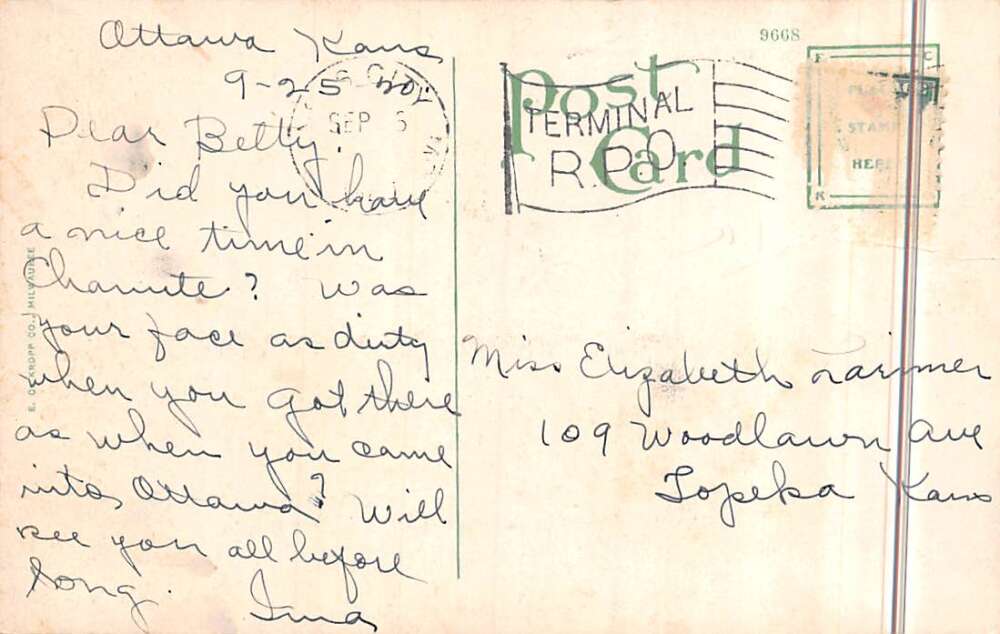 Ottawa Kans
9-25
Dear Betty:
Did you have
a nice time in
Chanute? Was
your face as dirty
when you got there
as when you came
into Ottawa? Will
see you all before
long.
Ima
E. C. KROPP CO., MILWAUKEE
SEP 5
Post
Card
TERMINAL
R.P.O.
9668
PLACE
STAMP
HERE
Miss Elizabeth Larimer
109 Woodlawn Ave
Topeka Kans